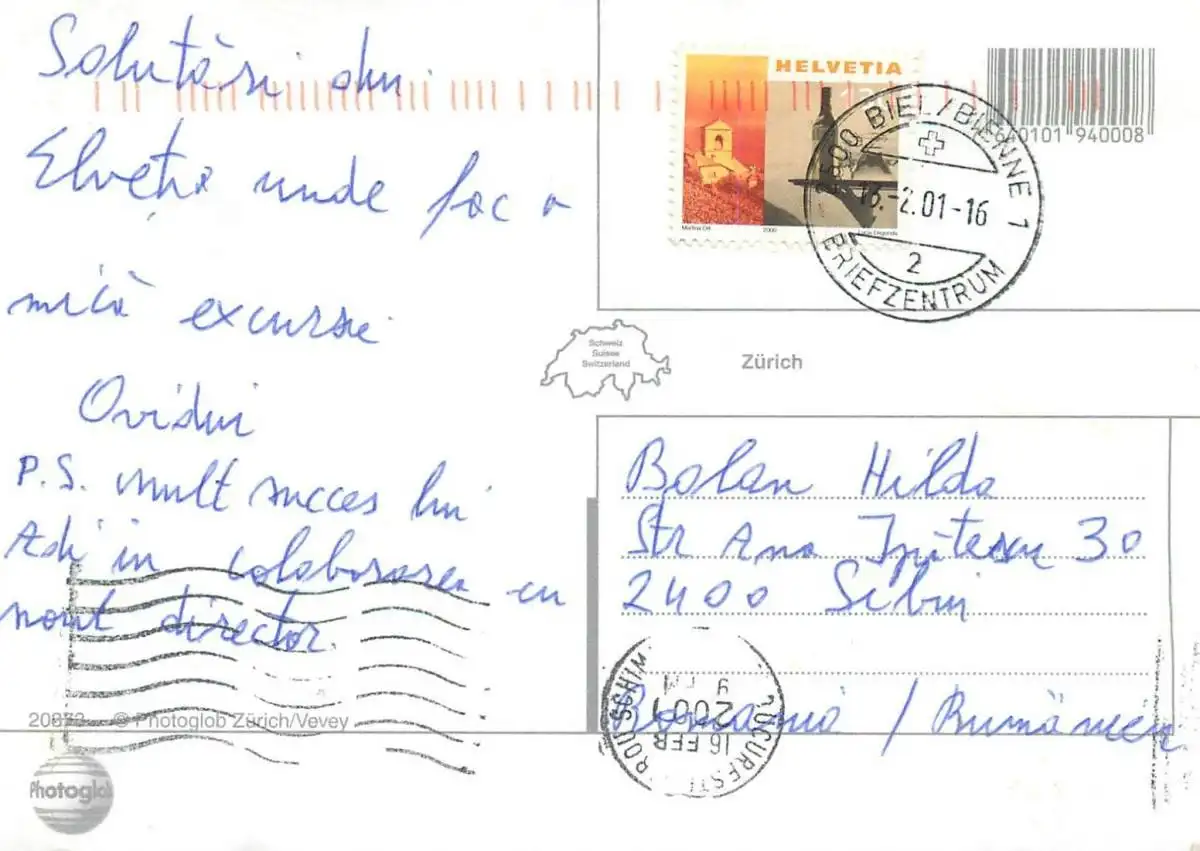 Salutări din
Elveția unde fac o
mică excursie
Ovidiu
P.S. mult succes lui
Adi în colaborarea cu
noul director.
20873 © Photoglob Zürich/Vevey
Photoglob
HELVETIA
Martina Ott 2000
2500 BIEL/BIENNE 1
13.-2.01-16
2
BRIEFZENTRUM
940008
Schweiz
Suisse
Switzerland
Zürich
Bolan Hilda
Str Ana Ipătescu 30
2400 Sibiu
România / Rumänien
BUCUREȘTI
16 FEB
2001